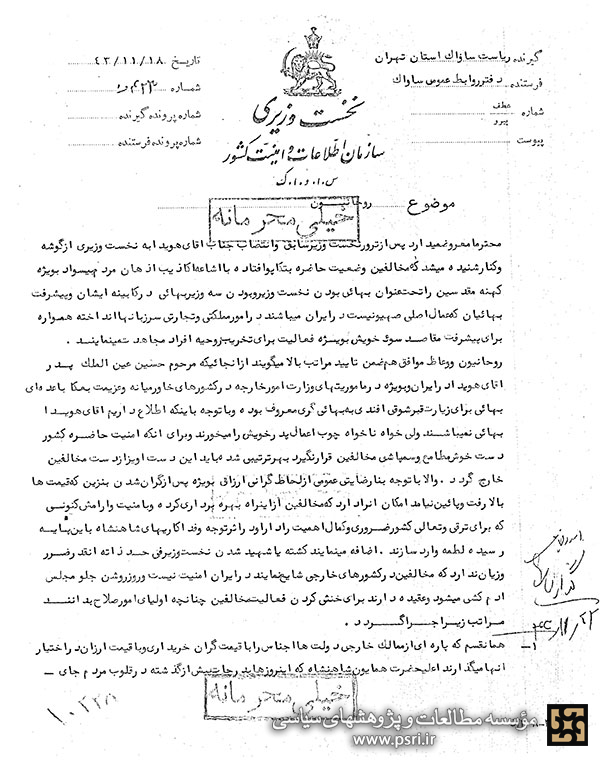 گیرنده ریاست ساواک استان تهران
فرستنده دفتر روابط عمومی ساواک
شماره عطف
پیرو
پیوست
نخست وزیری
سازمان اطلاعات و امنیت کشور
س.ا.و.ا.ک
تاریخ ۴۳/۱۱/۱۸
شماره
شماره پرونده گیرنده
شماره پرونده فرستنده
موضوع روحانیون
خیلی محرمانه
محترما معروض میدارد پس از ترور نخست وزیر سابق و انتصاب جناب آقای هویدا به نخست وزیری از گوشه
و کنار شنیده میشد که مخالفین وضعیت حاضره بتکاپو افتاده با اشاعه اکاذیب اذهان مردم بیسواد بویژه
کهنه مقدسین را تحت عنوان بهائی بودن نخست وزیر و بودن سه وزیر بهائی در کابینه ایشان و پیشرفت
بهائیان که عمال اصلی صهیونیست در ایران میباشند در امور مملکتی و تجارتی سر زبانها انداخته همواره
برای پیشرفت مقاصد سوء خویش بویژه فعالیت برای تخریب روحیه افراد مجاهدت مینمایند.
روحانیون و وعاظ موافق هم ضمن تایید مراتب بالا میگویند از آنجائیکه مرحوم حسین عین الملک پدر
آقای هویدا در ایران و بویژه در ماموریتهای وزارت امور خارجه در کشورهای خاورمیانه و عزیمت بعکا با عده ای
بهائی برای زیارت قبر شوقی افندی به بهائی گری معروف بوده و با توجه باینکه اطلاع داریم آقای هویدا
بهائی نمیباشند ولی خواه ناخواه چوب اعمال پدر خویش را میخورند و برای آنکه امنیت حاضره کشور
دست خوش مطامع و سمپاشی مخالفین قرار نگیرد بهر ترتیبی شده باید این دست آویز از دست مخالفین
خارج گردد. والا با توجه بنارضایتی عمومی از لحاظ گرانی ارزاق بویژه پس از گران شدن بنزین که قیمت ها
بالا رفت و پائین نیامد امکان آن دارد که مخالفین از این راه بهره برداری کرده و بامنیت و آرامش کنونی
که برای ترقی و تعالی کشور ضروری و کمال اهمیت را دارا و در اثر توجه و فداکاریهای شاهنشاه باین پایه
رسیده لطمه وارد سازند. اضافه مینمایند کشته یا شهید شدن نخست وزیر فی حد ذاته آنقدر ضرر
و زیان ندارد که مخالفین در کشورهای خارجی شایع نمایند در ایران امنیت نیست و روز روشن جلو مجلس
آدم کشی میشود و عقیده دارند برای خنثی کردن فعالیت مخالفین چنانچه اولیای امور صلاح بدانند
مراتب زیر اجرا گردد.
۱- همانقسم که پاره ای از ممالک خارجی دولت ها اجناس را با قیمت گران خریداری و با قیمت ارزان در اختیار
آنها میگذارند اعلیحضرت همایون شاهنشاه که امروزها بدرجات بیش از گذشته در قلوب مردم جای -
خیلی محرمانه
مؤسسه مطالعات و پژوهشهای سیاسی
www.psri.ir